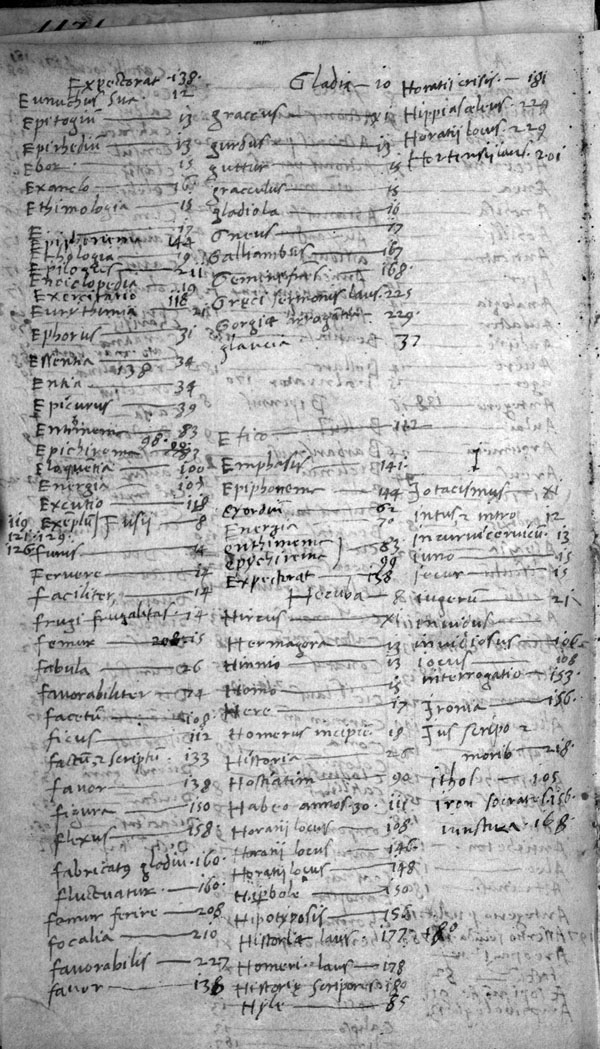 Expectorat 138.
Eunuchus sua. 12
Epitogiū 13
Epirhediū 13
Ebor 15
Exanclo 16
Ethimologia 15
E 17
Epiphonema 144
Ethologia 19
Epilogus 211
Enciclopedia 19
Exercitatio 118
Eurythmia 21
Ephorus 31
Essentia 34
138
Entia 34
Epicurus 39
Enthimema 83
98. 99.
Epichirema
Eloquētia 100
Energia 107
Excutio 118
119 Exēplū Fusii 8
121. 129.
126 funus 14
Fervere 14
faciliter 14
frugi frugalitas. 14
femur 208. 15
fabula 26
favorabiliter 74
facetū 108
ficus 112
factū & scriptū. 133
favor 138
figura 150
flexus 158
fabricatus gladiū. 160.
fluctuatur 160.
femur ferire 208
focalia 210
favorabilis 227
favor 136
Gladia 10
graccus xi
gurdus 13
guttur 15
gracculus 15
gladiola 16
Gneus 17
Galliambus 167
Geminatus 168.
Greci sermonis laus. 225
Gorgiæ 229.
glaucia 37
Etico. 112
Emphasis 141.
Epiphonema 144
exordiū 62
Energia 70
enthimema 83
epychirema 99
Expectorat 138
Hecuba 8
Hircus xi
Hermagora 13
Hinnio 13
Homo 15
Here 17
Homerus incipiē. 19
Historia 26
Hostiatim 90
Habeo annos 30. 111
Horatii locus 108
Horatii locus 146
Horatii locus 148
Hiperbole 150
Hipotyposis 156
Historiæ laus. 177. 180
Homeri laus 178
Historiæ scriptores 180
Hyle 85
Horatii crisis. 181
Hippias æleus. 229
Horatii locus. 229
Hortensii laus. 201
I
Iotacismus xi
intus, & intro 12
incurvicervicū. 13
iuno 15
iecur 15
iugerū 21
invidus
invidiosus 106
iocus 108
interrogatio 153.
Ironia 156.
Ius scripto &
morib 218.
ithol 105
iron socratis. 156.
168.